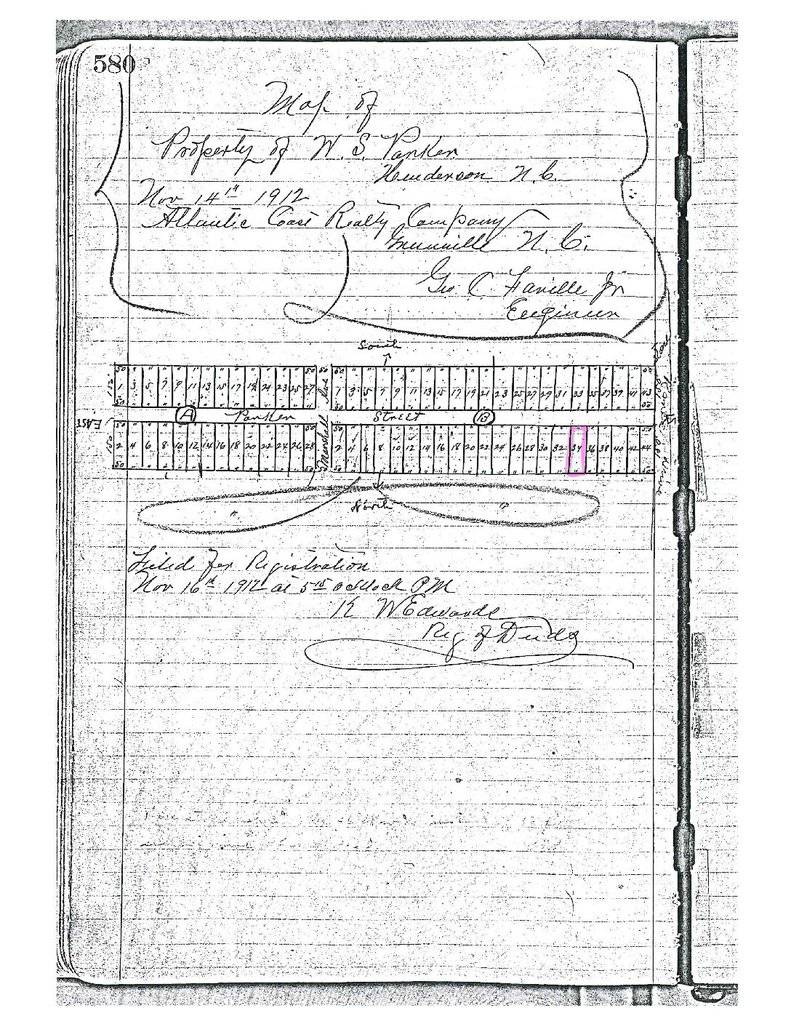 580
Map of
Property of W. S. Parker
Henderson N. C.
Nov 14th 1912
Atlantic Coast Realty Company
N. C.
Geo C. Faville Jr
Engineer
South
50 50 50 50
1 3 5 7 9 11 13 15 17 19 21 23 25 27 1 3 5 7 9 11 13 15 17 19 21 23 25 27 29 31 33 35 37 39 41 43
50 50 50 50
EAST A Parker Street B
50 50 50 50
2 4 6 8 10 12 14 16 18 20 22 24 26 28 2 4 6 8 10 12 14 16 18 20 22 24 26 28 30 32 34 36 38 40 42 44
50 50 50 50
Marshall
North
Filed for Registration
Nov 16th 1912 at 5 15 oclock PM
K W Edwards
Reg of Deeds